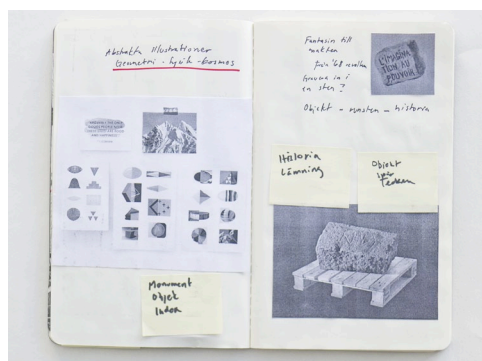 Abstrakta Illustrationer
Geometri - fysik - kosmos
Monument
Objek
Index
Fantasin till
makten
från '68 revolten
Gravera in i
en sten?
L'IMAGINA
TION AU
POUVOIR
Objekt - mynten - historia
Historia
Lämning
Objekt
spår
Tecken